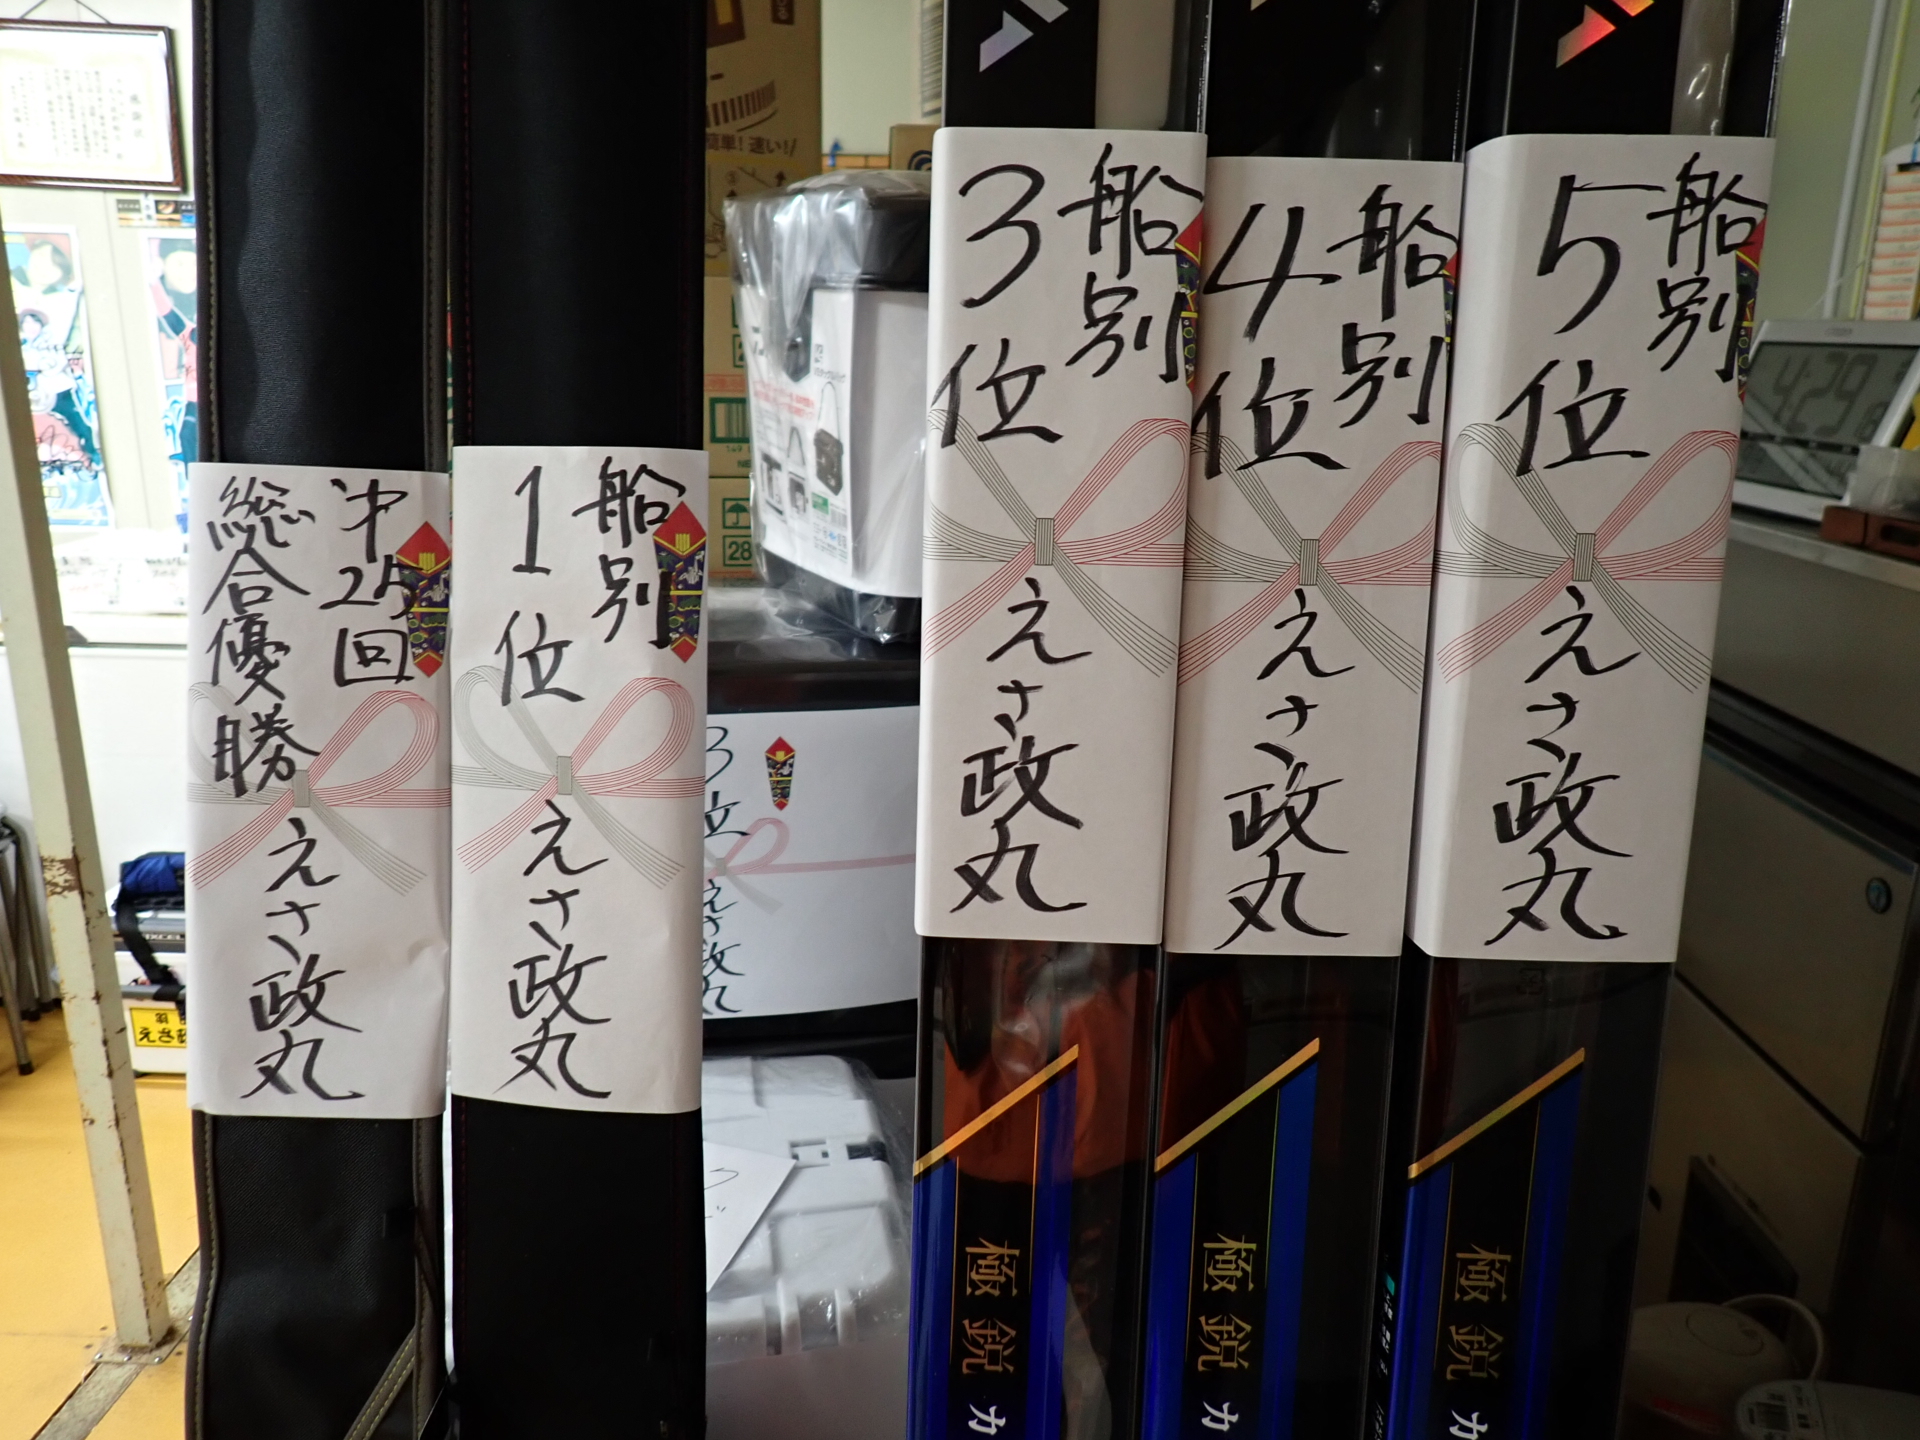 沖25回
総合優勝
えさ政丸
船別
1位
えさ政丸
3位
えさ政丸
船別
3位
えさ政丸
船別
4位
えさ政丸
船別
5位
えさ政丸
極鋭 カ
極鋭 カ
極鋭 カ
簡単!速い!!
4:29
28
えさ政
EXCEL